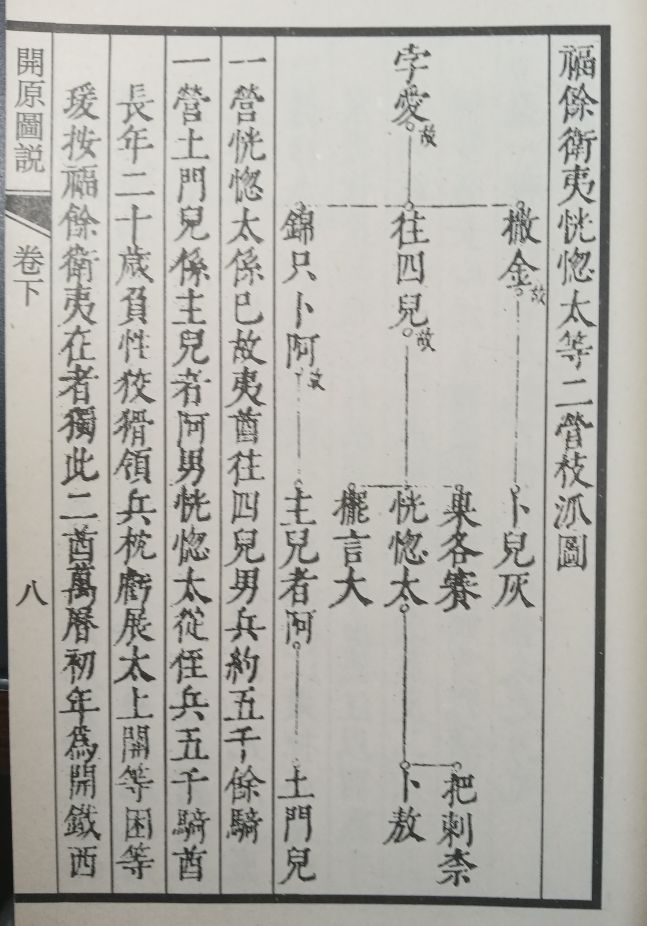 福餘衛夷恍惚太等二營枝派圖
撒金故
卜兒灰
孛愛故
往四兒故
果各賽
恍惚太
擺言大
把剌奈
卜敖
錦只卜阿故
主兒者阿
土門兒
一營恍惚太係已故夷酋往四兒男兵約五千餘騎
一營土門兒係主兒者阿男恍惚太從侄兵五千騎酋
長年二十歲負性狡猾領兵杭虧展太上開等困等
瑗按福餘衛夷在者獨此二酋萬曆初年為開鐵西
開原圖説
卷下
八